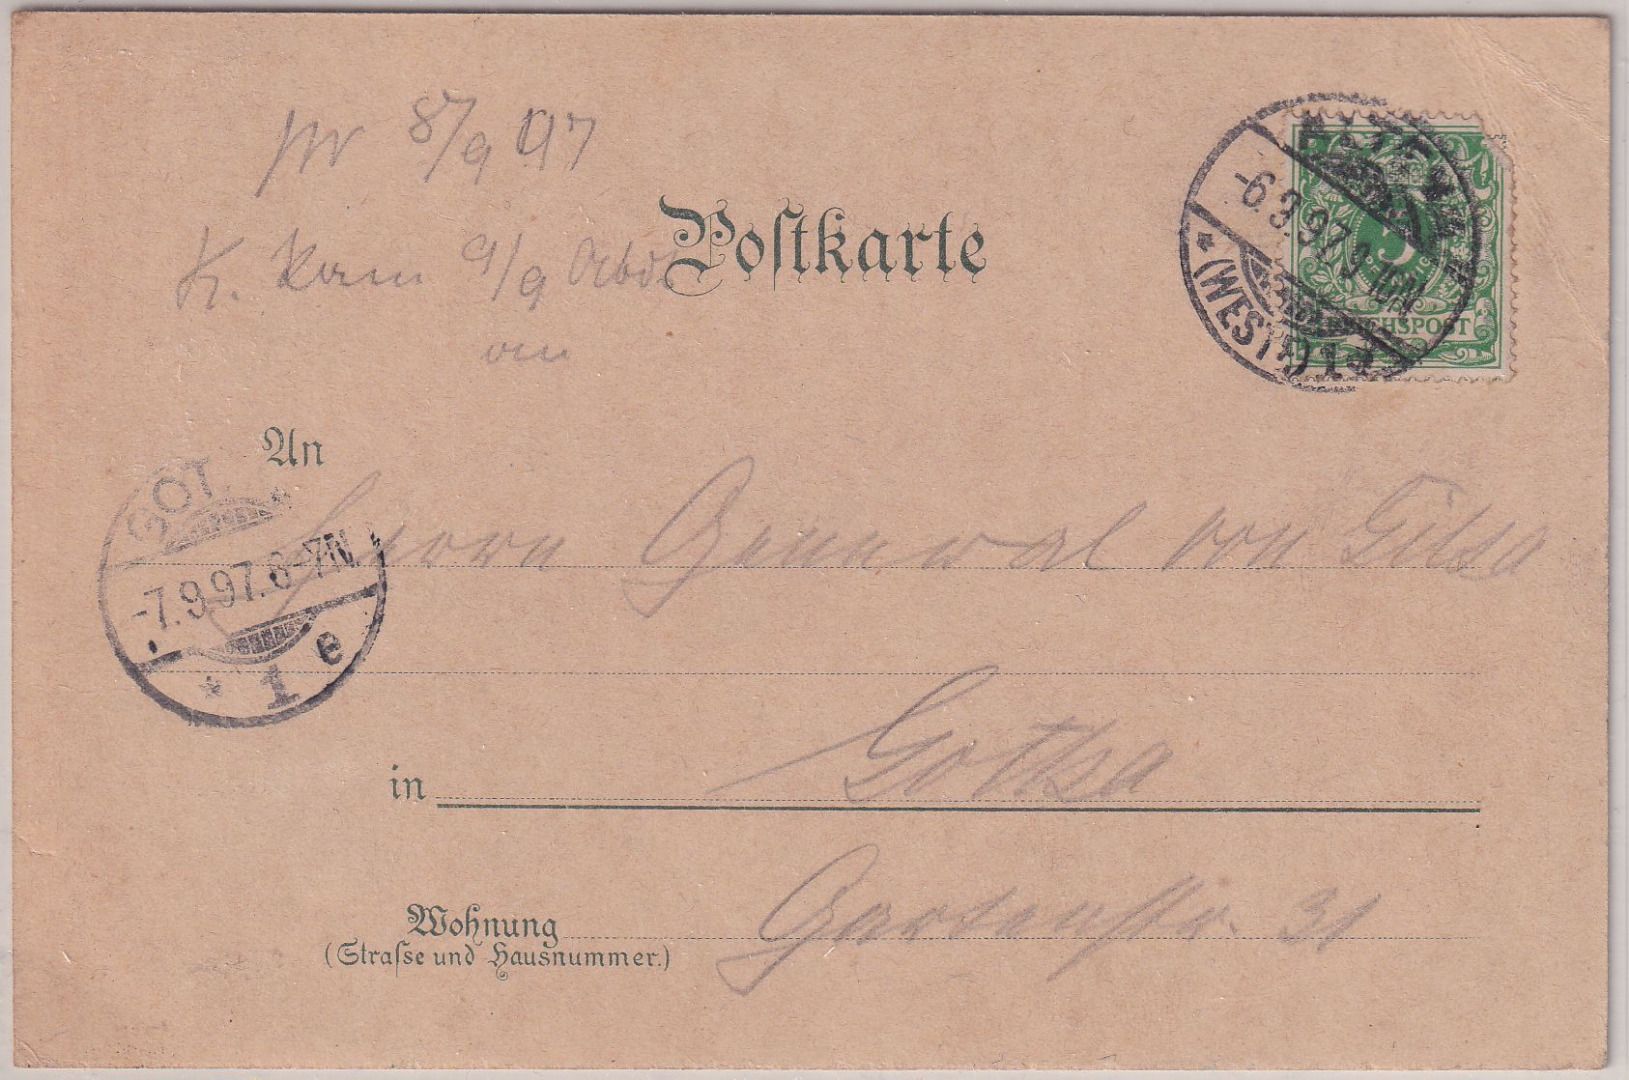 pr 8/9 97
K. 9/9
Postkarte
ALTENA
-6.9.97.9-10N
(WESTF.)
REICHSPOST
An
GOT
-7.9.97.6-7N
* 1 e
Herrn General von Gilsa
in Gotha
Wohnung Gartenstr. 31
(Straſse und Hausnummer.)